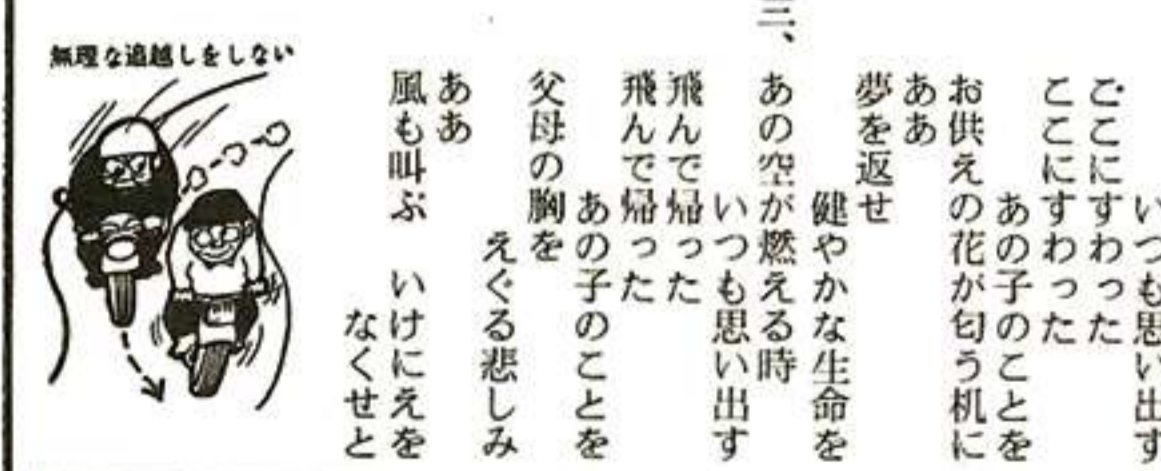 いつも思い出す
ここにすわった
ここにすわった
あの子のことを
お供えの花が匂う机に
ああ
夢を返せ
健やかな生命を
三、あの空が燃える時
いつも思い出す
飛んで帰った
飛んで帰った
あの子のことを
父母の胸を
えぐる悲しみ
ああ
風も叫ぶ　いけにえを
なくせと
無理な追越しをしない